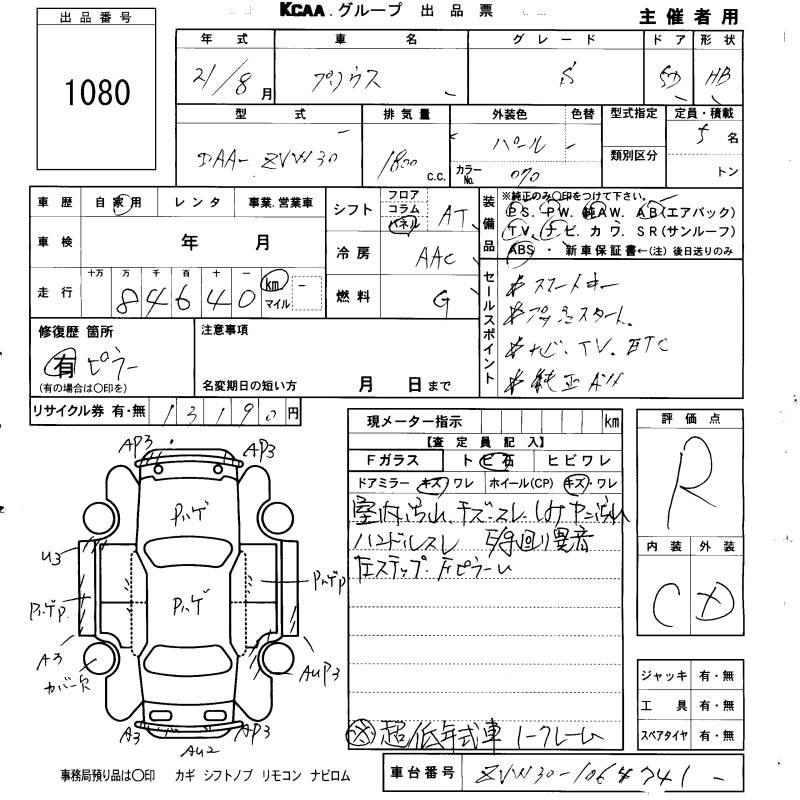 KCAA.グループ 出品票
主催者用
出品番号
1080
年式 車名 グレード ドア 形状
21/8月 プリウス S 5D HB
型式 排気量 外装色 色替 型式指定 定員・積載
DAA-ZVW30 1800 c.c. パール 5名
カラーNo. 070 類別区分 トン
車歴 自家用 レンタ 事業.営業車
車検 年 月
走行 十万 万 千 百 十 一
84640 km マイル
シフト フロア コラム パネル AT
冷房 AAC
燃料 G
装備品
※純正のみ〇印をつけて下さい。
PS. PW. 純AW. AB(エアバック)
TV. ナビ. カワ. SR(サンルーフ)
ABS ・ 新車保証書←(注)後日送りのみ
セールスポイント
スマートキー
プッシュスタート
ナビ、TV、ETC
純正AW
修復歴 箇所
有 ピラー
(有の場合は〇印を)
注意事項
名変期日の短い方 月 日まで
リサイクル券 有・無 13190円
現メーター指示 km
【査定員記入】
Fガラス トビ石 ヒビワレ
ドアミラー キズ・ワレ ホイール(CP) キズ・ワレ
室内汚れ、キズ・スレ
ハンドルスレ 異音
左ステップ
超低年式車
評価点
R
内装 外装
C D
ジャッキ 有・無
工具 有・無
スペアタイヤ 有・無
AP3 AP3
U3
A3
カバー欠
AUP3
A3 AP3
AU2
事務局預り品は〇印 カギ シフトノブ リモコン ナビロム
車台番号 ZVW30-